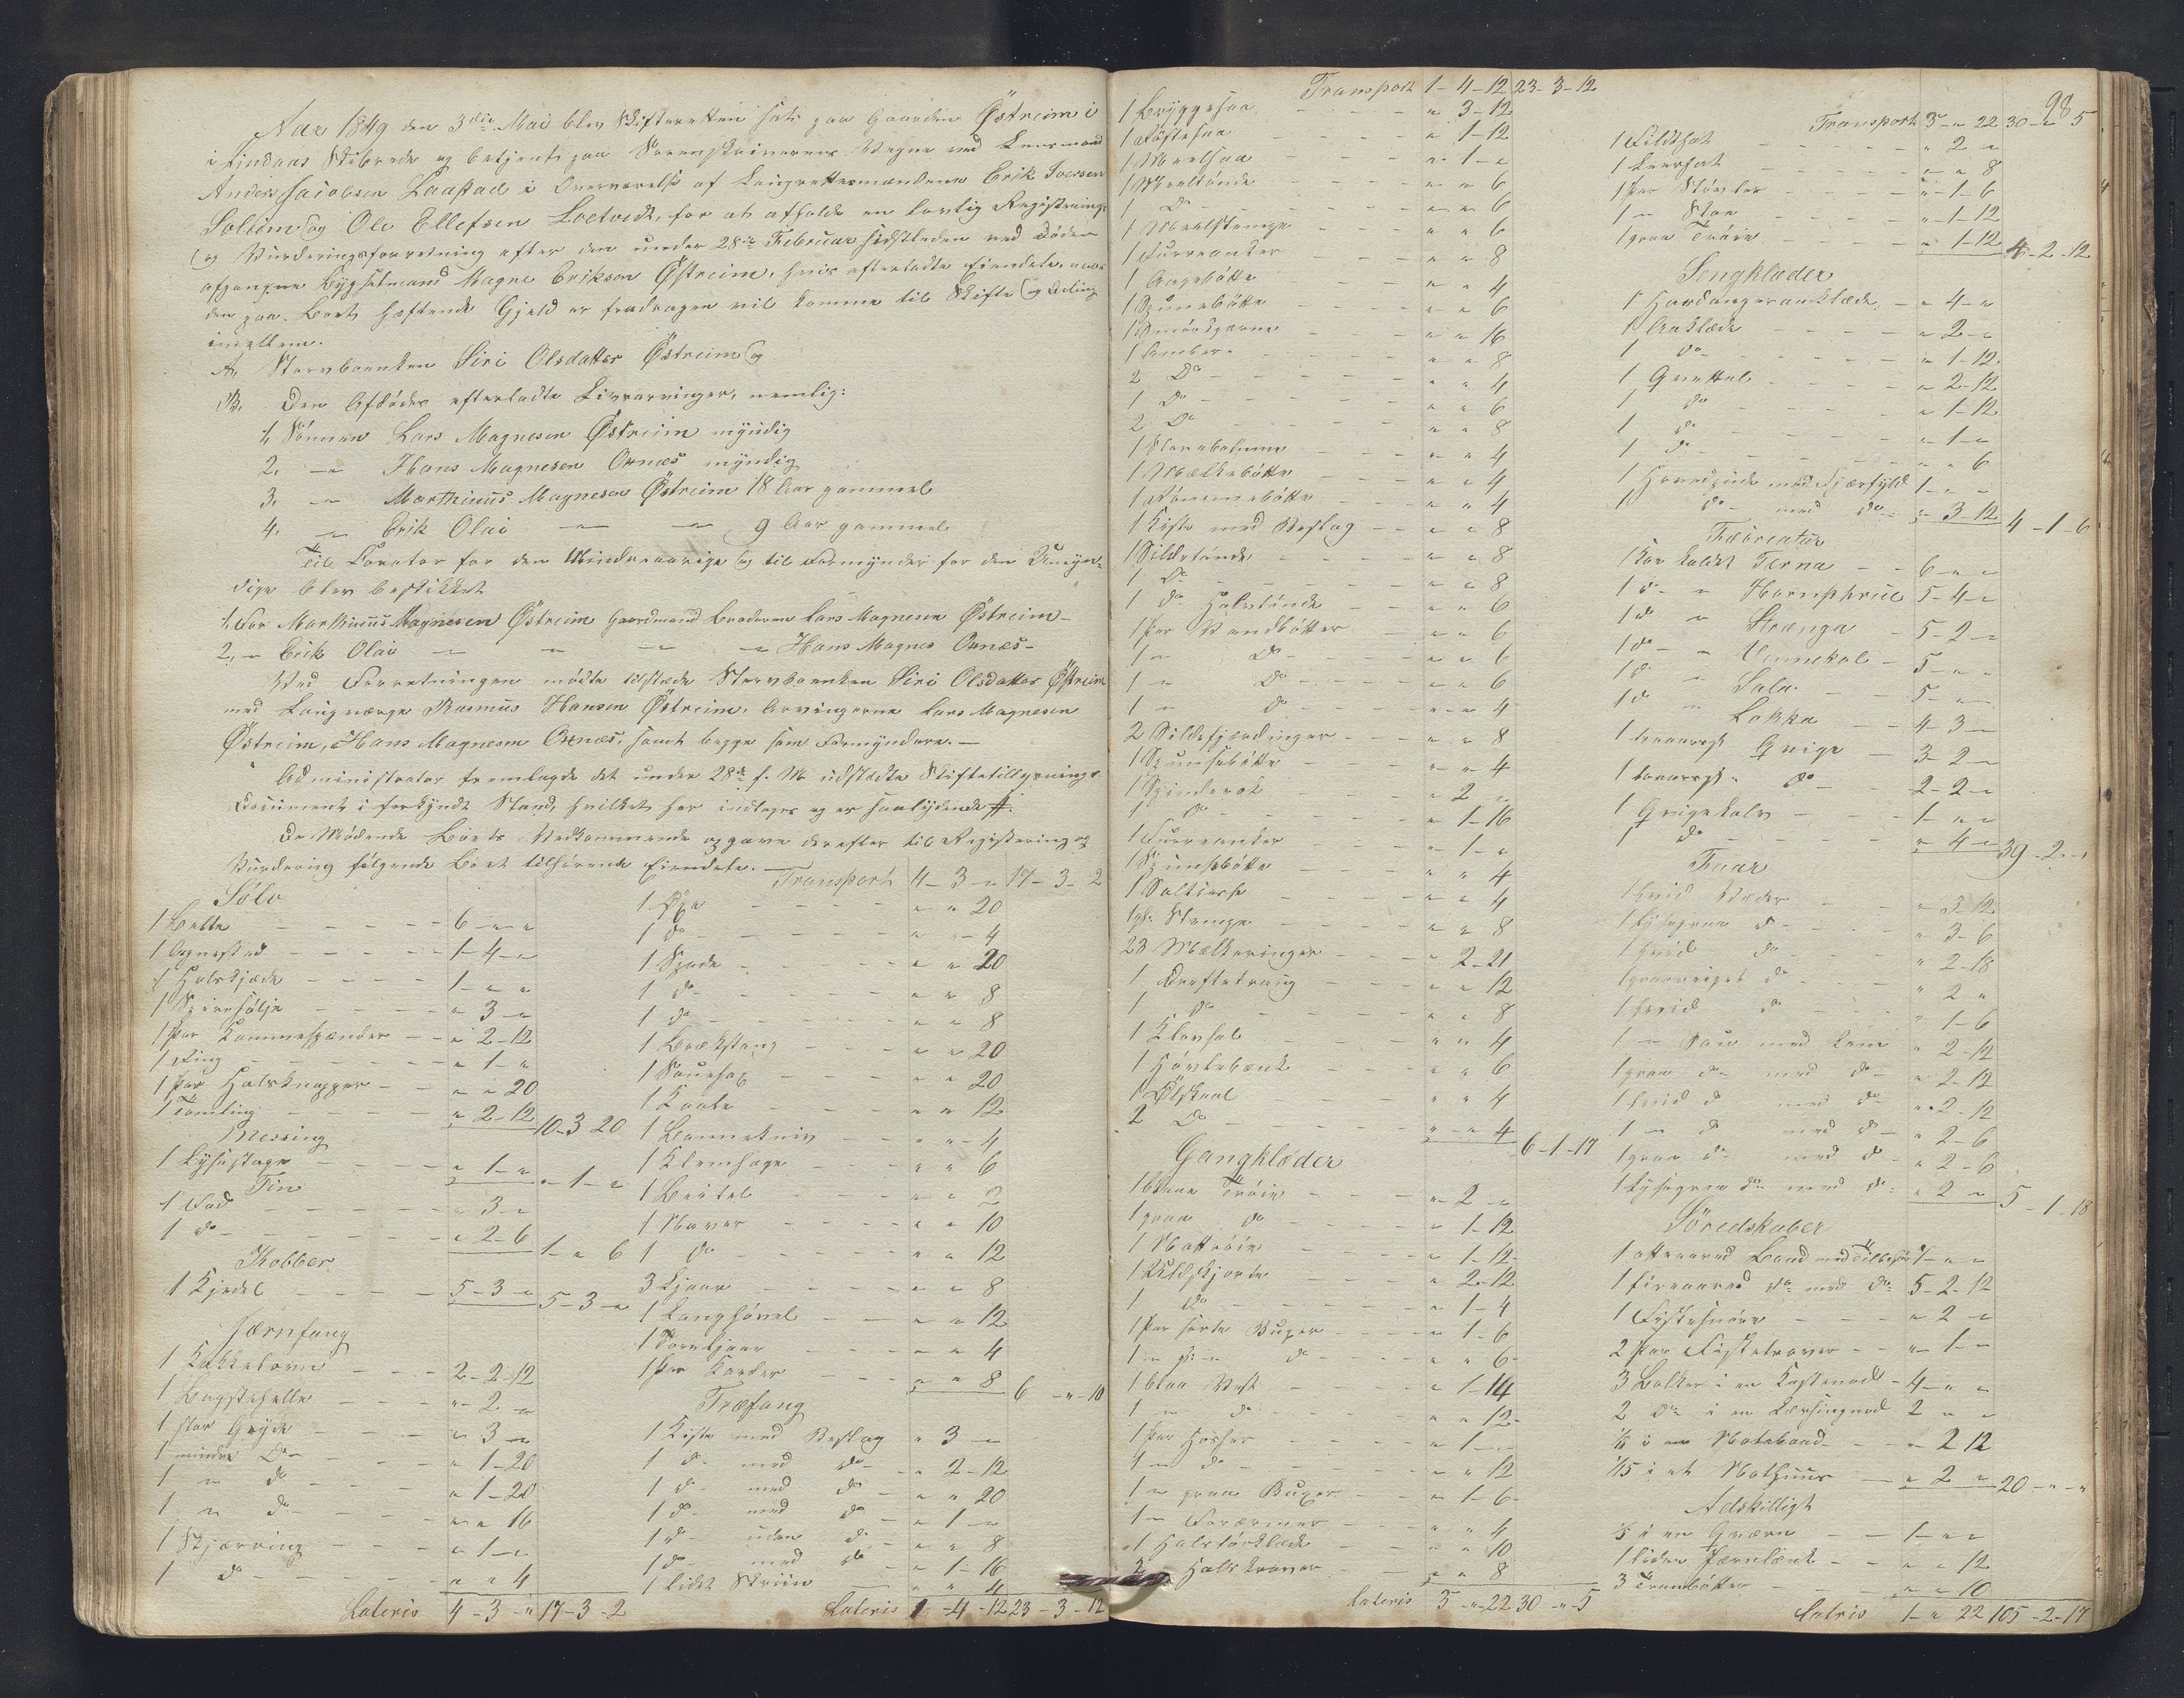 Aar 1849 den 3die Mai blev Skifteretten sat paa Gaarden Östreim i
i Lindaas Skibrede og betjent paa Sorenskriverens Vegne ved Lensmand
Anders Jacobsen Laastad i Overværelse af Laugrettesmændene Erik Iversen
Soleim og Ole Ellefsen Loetvedt, for at afholde en lovlig Registrerings
og Vurderingsforretning efter den under 28de Februar sidstleden ved Döden
afgangne Bygselmand Magne Erikson Östreim, hvis efterladte Eiendele, naar
den paa Boet hæftende Gjeld er fradragen vil komme til Skifte og Deling
imellem.
A, Stervboenken Siri Olsdatter Östreim og
B, Den Afdödes efterladte Livsarvinger, nemlig:
1, Sönnen Lars Magnesen Östreim myndig
2, -"- Hans Magnesen Oxnæs myndig
3, -"- Marthinus Magnesen Östreim 18 Aar gammel
4, -"- Erik Olai -"- -"- 9 Aar gammel
Til Curator for den Mindreaarige og til Formynder for den Umyn-
dige blev beskikket
1, For Marthinus Magnesen Östreim Gaardmand Broderen Lars Magnesen Östreim-
2, -"- Erik Olai -"- -"- -"- -"- Hans Magnes Oxnæs-
Ved Forretningen mödte tilstede Stervboenken Siri Olsdatter Östreim
med Laugværge Rasmus Hansen Östreim, Arvingerne Lars Magnesen
Östreim, Hans Magnesen Oxnæs, samt begge som Formyndere.-
Administrator fremlagde det under 28de f. M. udstædte Skiftetillysnings
Document i forkyndt Stand hvilket her indtages og er saalydende #.
De Mödende Boets Vedkommende opgave derefter til Registrering og
Vurdering fölgende Boet tilhörende Eiendele.-
Sölv
1 Belte - - 6 - " - "
1 Agnested - - 1 - 4 - "
1 Halskjæde - - 1 - " - "
1 Spiresölje - - " 3 - "
1 Par Lommespænder - - " 2 - 12
1 Ring - - " 1 - "
1 Par Halsknapper - - " " 20
1 Tömling - - " 2 - 12 10 - 3 20
Messing
1 Lysestage - - " 1 - " " - 1 - "
Tin
1 Fad - - " 3 - "
1 do - - " 2 - 6 1 - " 6
Kobber
1 Kjedel - - 5 - 3 - " 5 - 3 - "
Jærnfang
1 Kakkelovn - - 2 - 2 - 12
1 Bagstehelle - - " 2 - "
1 stor Gryde - - " 3 - "
1 mindre Do - - " 1 - 20
1 " do - - " 1 - 20
1 " do - - " " 16
1 Skjærring - - " 1 - "
1 do - - " " 4
Lateris 4 - 3 - " 17 - 3 - 2
Transport 4 - 3 - " 17 - 3 - 2
1 Öxe - - " " 20
1 do - - " " 4
1 Spade - - " " 20
1 do - - " " 8
1 do - - " " 8
1 Brækstang - - " " 20
1 Sauesax - - " " 20
1 Baate - - " " 12
1 Bannekniv - - " " 4
1 Klemsage - - " " 6
1 Beitel - - " " 2
1 Naver - - " " 10
1 do - - " " 12
3 Ljaar - - " " 8
1 Langhövel - - " " 12
1 Torvljaar - - " " 4
1 Par Karder - - " " 8 6 - " - 10
Træfang
1 Kiste med Beslag " 3 - "
1 do med do - " 2 - 12
1 do med do - " " 20
1 do med do - " 1 - "
1 do uden do - " " 8
1 do med do - " 1 - 16
1 lidet Skrin " " 4
Lateris 1 - 4 - 12 23 - 3 - 12
Transport 1 - 4 - 12 23 - 3 - 12
1 Bryggesaa - - " 3 - 12
1 Röstesaa - - " 1 - 12
1 Meelsaa - - " 1 - "
1 Meeltönde - - " " 6
1 Do - - " " 6
1 Meelstampe - - " " 6
1 Furreanker - - " " 8
1 Øngebötte - - " " 4
1 Spunebötte - - " " 6
1 Smörkjærne - - " " 16
1 Amber - - " " 8
2 Do - - " " 4
1 Do - - " " 6
2 Do - - " " 8
1 Skarebalnum - - " " 4
1 Melkebötte - - " " 4
1 Römmebötte - - " " 4
1 Kiste med Beslag - - " " 8
1 Sildetönde - - " " 8
1 Do - - " " 8
1 do Halvtönde - - " " 6
1 Par Vandbötter - - " " 6
1 " Do - - " " 6
1 " Do - - " " 6
1 " do - - " " 4
2 Sildefjerdinger - - " " 8
1 Spunsebötte - - " " 4
1 Spinderok - - " 2 - "
1 do - - " 1 - 16
1 Furreanker - - " 1 - "
1 Spunsebötte - - " " 4
1 Saltkasse - - " " 4
1 gl. Stampe - - " " 8
23 Melkeringer - - " 2 - 21
1 Drøftetroug - - " " 12
1 do - - " " 8
1 Klevsal - - " " 4
1 Hövlebænk - - " " 6
1 Ölskaal - - " " 4
2 Do - - " " 4 6 - 1 - 17
Gangklæder
1 blaae Tröie - - " 2 - "
1 graa do - - " 1 - 12
1 Nattröie - - " 1 - 12
1 Uldskjorte - - " 2 - 12
1 do - - " 1 - 4
1 Par sorte Buxer - - " 1 - 6
1 " gl. " do - - " " 6
1 blaa Vest - - " 1 - 14
1 " do - - " " 12
1 Par Hoser - - " 1 - "
1 " do - - " " 12
1 " graa Buxer - - " 1 - 6
1 " Forærmer - - " " 4
1 Halstörklæde - - " " 10
2 Halskraver - - " " 8
Lateris 3 - " 22 30 - " - 5
98
Transport 3 - " 22 30 - " 5
1 Filthat - - " 2 "
1 Læerhat - - " " 8
1 Par Stövler - - " 1 - 6
1 " Skoe - - " 1 - 12
1 graa Tröie - - " 1 - 12 4 - 2 - 12
Sengklæder
1 Hardangeraaklæde, - " 4 - "
1 Aaklæde - - " 2 - "
1 do - - " 1 - 12
1 Grettel - - " 2 - 12
1 do - - " 1 - 12
1 do - - " 1 - "
1 do - - " " 6
1 Hovedpude med Fjærfyld 1 - " "
1 do med do - " 3 - 12 4 - 1 - 6
Fæcreatur
1 Koe kaldet Terna - - 6 - " "
1 do " Hornphrue 5 - 4 - "
1 do " Strænga - 5 - 2 - "
1 do " Vennekol - 5 - " "
1 do " Sala - - 5 - " "
1 do " Lokka - - 4 - 3 - "
1 toaarsgl. Qvige - 3 - 2 - "
1 toaarsgl. do - 2 - 2 - "
1 Qvigekalv - - 1 - " "
1 do - - " 4 - " 39 - 2 - "
Faar
1 hvid Væder - - " 3 - 12
1 lysegraa do - - " 3 - 6
1 hvid do - - " 2 - 18
1 graaveiget do - - " 2 "
1 hvid do - - " 1 - 6
1 " Sau med Lam " 2 - 12
1 graa do med do " 2 - 12
1 hvid do med do " 2 - 12
1 " do med do - " 2 - 6
1 graa do med do " 2 - 6
1 lysegraa do med do " 2 " 5 - 1 - 18
Söredskaber
1 attenarred Baad med Tilbehör 7 - " "
1 firearred do med do 5 - 2 - 12
1 Fiskesnöre - - " 2 - "
2 Par Fisketraver - - " 1 - "
3 Bolker i en Kastenod - 4 - " "
2 do i en Læxingnod 2 " "
1/8 i en Notebaad - - " 2 12
1/15 i et Nothuus - - " 2 " 20 - " - "
Adskilligt
1/5 i en Qværn - - 1 - " "
1 liden Jærnlænk - - " " 12
3 Tranbötter - - " " 10
Lateris 1 - " 22 105 - 2 - 17